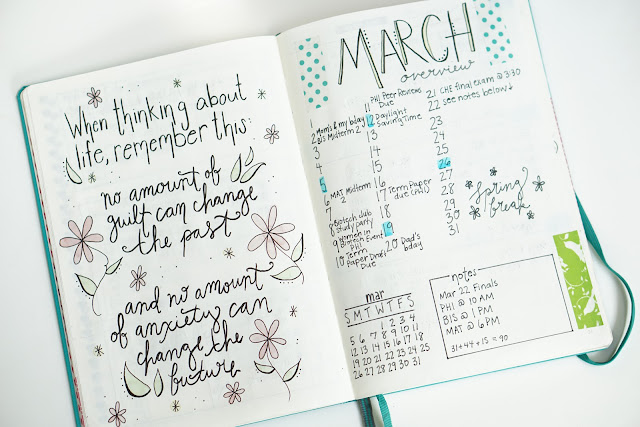 When thinking about
life, remember this:
no amount of
guilt can change
the past
and no amount
of anxiety can
change the
future
MARCH
overview
1 Mom's & my bday
2 BIS Midterm 2
3
4
5
6 MAT Midterm
2
7
8 Biotech club
study party
9 Women in
Biotech Event
10 PHI
Term
Paper Draft
Due
11 PHI Peer Reviews
Due
12 Daylight
Saving Time
13
14
15
16
17 Term Paper
due (PHI)
18
19
20 Dad's
bday
21 CHE final exam @ 3:30
22 see notes below ↓
23
24
25
26
27
28
29
30
31
spring
break
mar
S M T W T F S
1 2 3 4
5 6 7 8 9 10 11
12 13 14 15 16 17 18
19 20 21 22 23 24 25
26 27 28 29 30 31
notes
Mar 22 Finals
PHI @ 10 AM
BIS @ 1 PM
MAT @ 6 PM
31+44+15=90